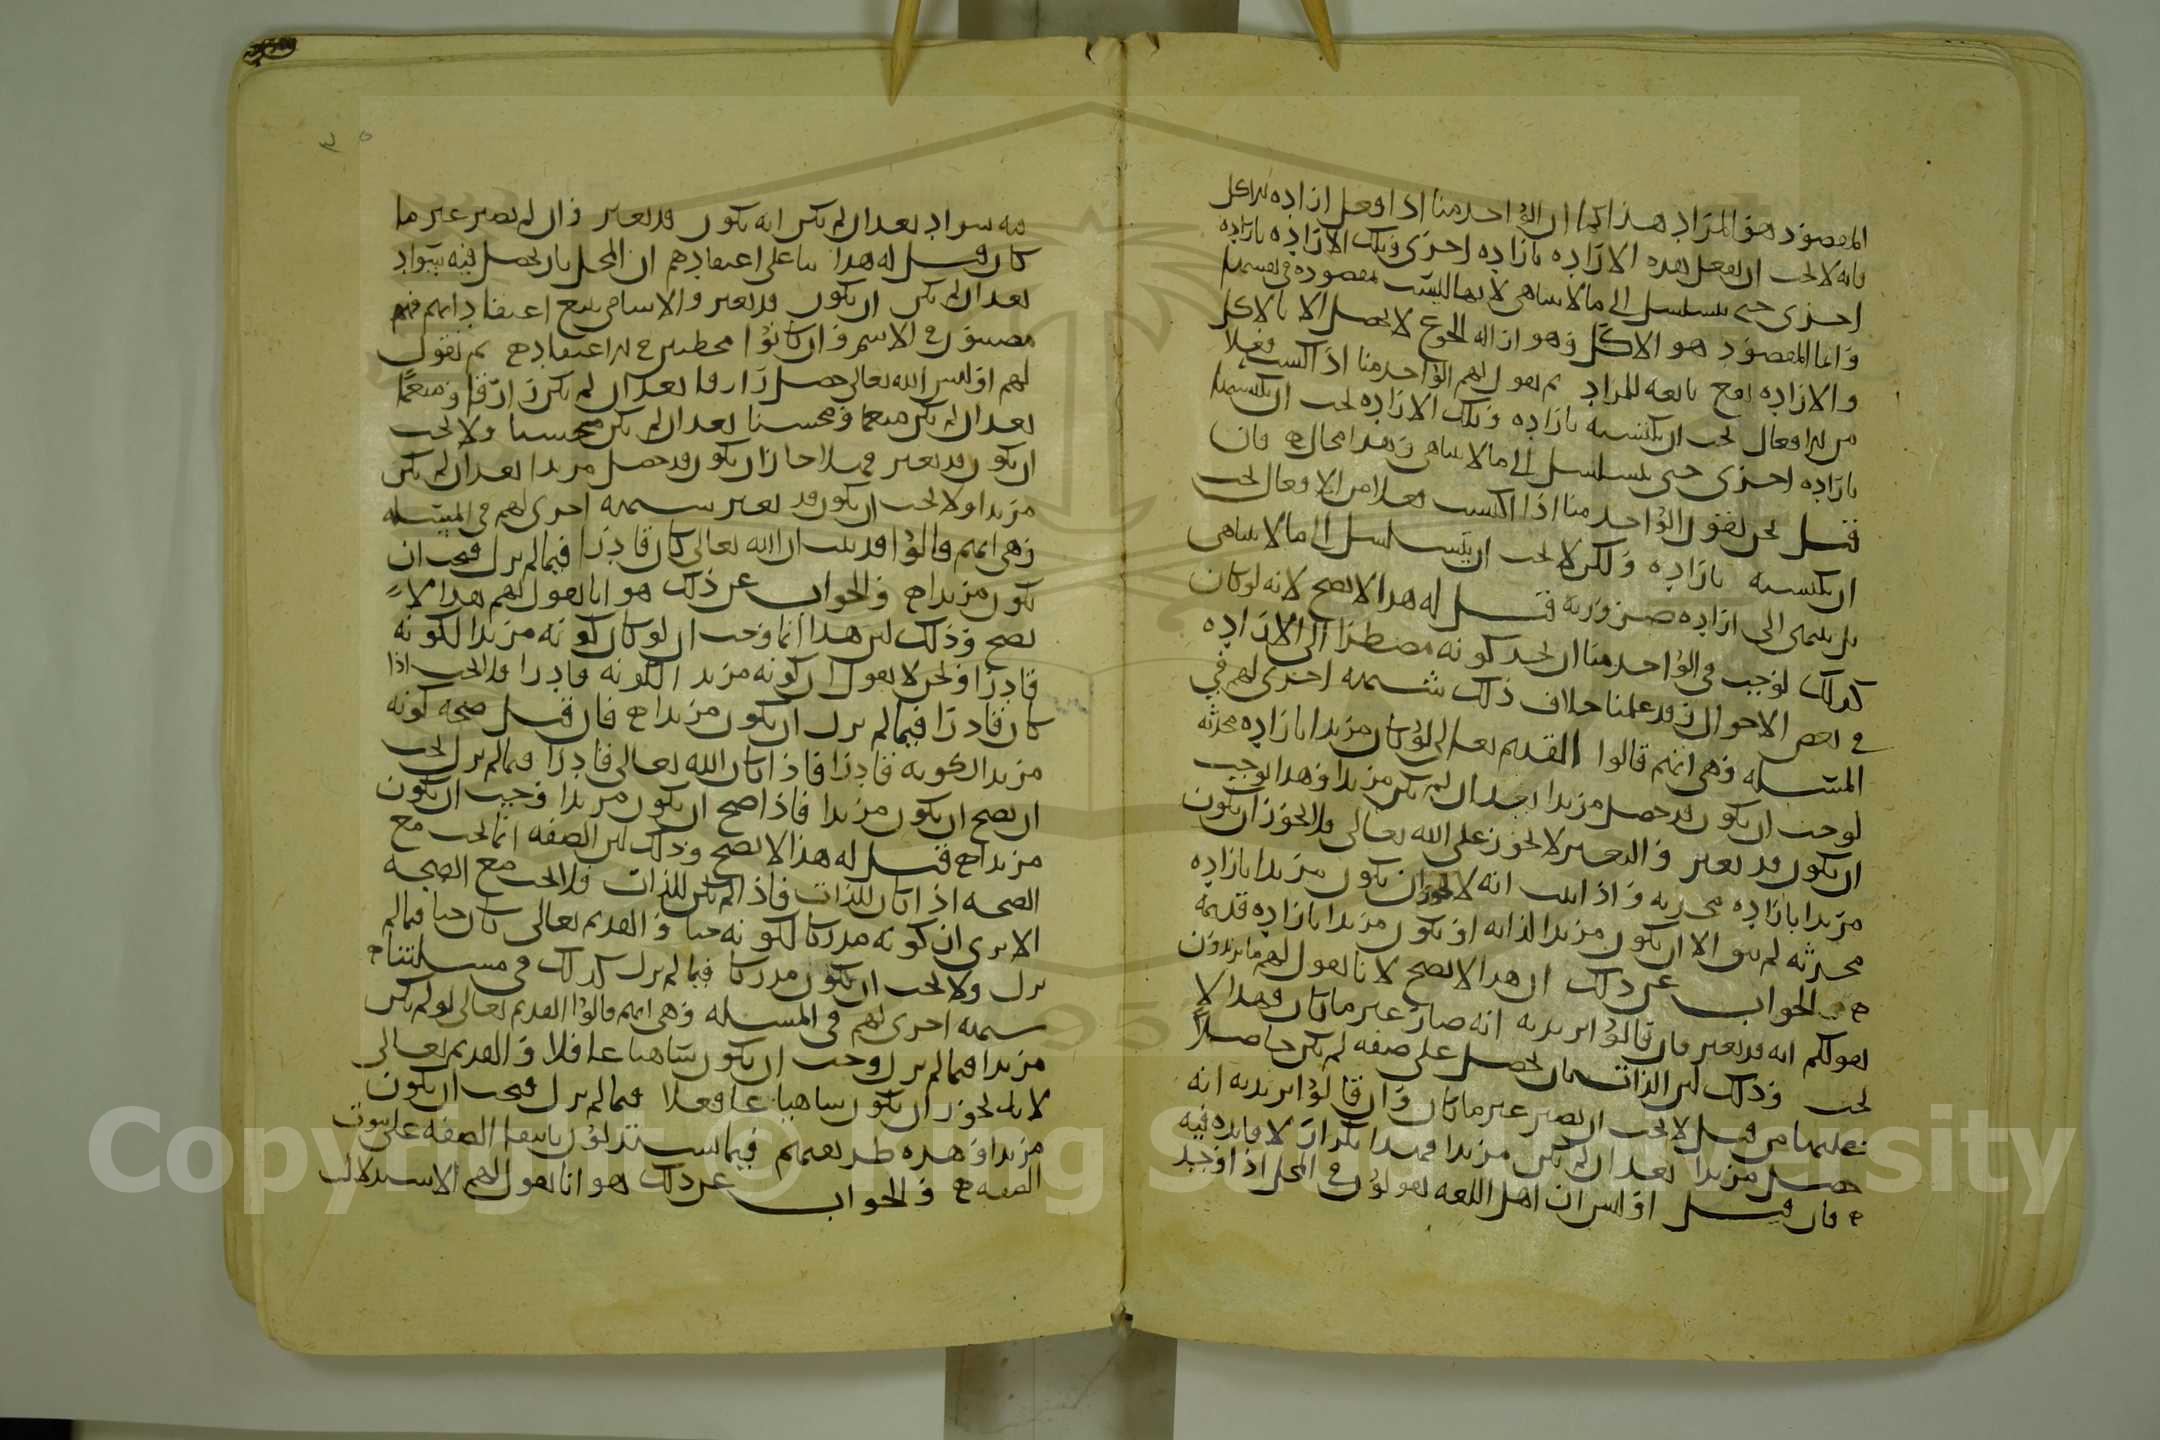 المقصود هو المراد هذا كما ان الواحد منا اذا فعل ارادة للاكل
فانه لا يجب ان يفعل هذه الارادة بارادة اخرى وتلك الارادة بارادة
اخرى حتى يتسلسل الى ما لا يتناهى لانها ليست مقصودة في نفسها
وانما المقصود هو الاكل وهو ازالة الجوع لا يحصل الا بالاكل
والارادة تقع تابعه للمراد ثم نقول لهم الواحد منا اذا اكتسب فعلا
من الافعال يجب ان يكتسبه بارادة وتلك الارادة يجب ان يكتسبها
بارادة اخرى حتى يتسلسل الى ما لا يتناهى وهذا محال فان
قيل نحن نقول الواحد منا اذا اكتسب فعلا من الافعال يجب
ان يكتسبه بارادة ولكن لا يجب ان يتسلسل الى ما لا يتناهى
بل ينتهى الى ارادة ضرورية قيل له هذا لا يصح لانه لو كان
كذلك لوجب في الواحد منا ان يجد كونه مضطرا الى الارادة
في بعض الاحوال وقد علمنا خلاف ذلك شبهه اخرى لهم في
المسئله وهي انهم قالوا القديم تعالى لو كان مريدا بارادة محدثه
لوجب ان يكون قد حصل مريدا بعد ان لم يكن مريدا وهذا يوجب
ان يكون قد تغير والتغير لا يجوز على الله تعالى فلا يجوز ان يكون
مريدا بارادة محدثه واذا ثبت انه لا يجوز ان يكون مريدا بارادة
محدثه لم يبق الا ان يكون مريدا لذاته او يكون مريدا بارادة قديمة
والجواب عن ذلك ان هذا لا يصح لانا نقول لهم ما تريدون
بقولكم انه قد تغير فان قالوا نريد به انه صار غير ما كان فهذا لا
يجب وذلك لان الذات بان يحصل على صفه لم يكن حاصلا
عليها من قبل لا يجب ان يصير غير ما كان وان قالوا نريد به انه
حصل مريدا بعد ان لم يكن مريدا فهذا تكرار لا فايدة فيه
فان قيل اوليس ان اهل اللغه يقولون في المحل اذا وجد
٣٥
فيه سواد بعد ان لم يكن انه يكون قد تغير وان لم يصر غير ما
كان قيل له هذا بنا على اعتقادهم ان المحل بان يحصل فيه سواد
بعد ان لم يكن ان يكون قد تغير والاسامى تتبع اعتقاداتهم فهم
مصيبون في الاسم وان كانوا مخطيين في اعتقادهم ثم نقول
لهم اوليس الله تعالى حصل رازقا بعد ان لم يكن رازقا ومنعما
بعد ان لم يكن منعما ومحسنا بعد ان لم يكن محسنا ولا يجب
ان يكون قد تغير فهلا جاز ان يكون قد حصل مريدا بعد ان لم يكن
مريدا ولا يجب ان يكون قد تغير شبهه اخرى لهم في المسئله
وهي انهم قالوا قد ثبت ان الله تعالى كان قادرا فيما لم يزل فيجب ان
يكون مريدا والجواب عن ذلك هو انا نقول لهم هذا لا
يصح وذلك لان هذا انما وجب ان لو كان كونه مريدا لكونه
قادرا ونحن لا نقول ان كونه مريدا لكونه قادرا فلا يجب اذا
كان قادرا فيما لم يزل ان يكون مريدا فان قيل صحة كونه
مريدا لكونه قادرا فاذا كان الله تعالى قادرا فيما لم يزل يجب
ان يصح ان يكون مريدا فاذا صح ان يكون مريدا وجب ان يكون
مريدا قيل له هذا لا يصح وذلك لان الصفه انما تجب مع
الصحه اذا كان للذات فاذا لم يكن للذات فلا يجب مع الصحة
الا ترى ان كونه مدركا لكونه حيا والقديم تعالى كان حيا فيما لم
يزل ولا يجب ان يكون مدركا فيما لم يزل كذلك في مسئلتنا
شبهه اخرى لهم في المسئله وهي انهم قالوا القديم تعالى لو لم يكن
مريدا فيما لم يزل وجب ان يكون ساهيا غافلا والقديم تعالى
لا يجوز ان يكون ساهيا غافلا فيما لم يزل فيجب ان يكون
مريدا وهذه طريقتهم فيما يستدلون بانتفا الصفه على ثبوت
الصفه والجواب عن ذلك هو انا نقول لهم الاستدلال
Copyright © King Saud University